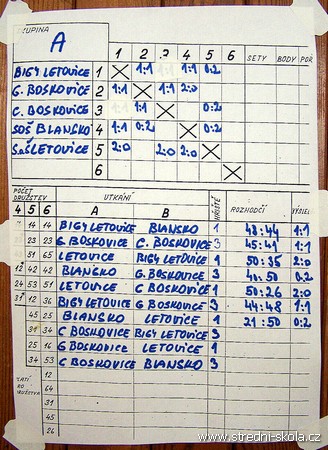 SKUPINA
A
1 2 3 4 5 6 SETY BODY POŘ
BIGY LETOVICE 1 1:1 1:1 0:2
G. BOSKOVICE 2 1:1 1:1 2:0
C. BOSKOVICE 3 1:1 1:1 0:2
SOŠ BLANSKO 4 1:1 0:2 0:2
SOŠ LETOVICE 5 2:0 2:0 2:0
6
POČET DRUŽSTEV UTKÁNÍ HŘIŠTĚ ROZHODČÍ VÝSLED
4 5 6 A B
14 14 BIGY LETOVICE BLANSKO 1 43:44 1:1
23 23 G. BOSKOVICE C. BOSKOVICE 3 45:41 1:1
51 65 LETOVICE BIGY LETOVICE 1 50:35 2:0
12 42 42 BLANSKO G. BOSKOVICE 3 40:50 0:2
24 53 51 LETOVICE C BOSKOVICE 1 50:26 2:0
31 12 36 BIGY LETOVICE G BOSKOVICE 3 44:48 1:1
45 25 BLANSKO LETOVICE 1 21:50 0:2
31 34 C BOSKOVICE BIGY LETOVICE 3
25 16 G BOSKOVICE LETOVICE 1
34 53 C BOSKOVICE BLANSKO 3
12
64
31
45
26
www.stredni-skola.cz